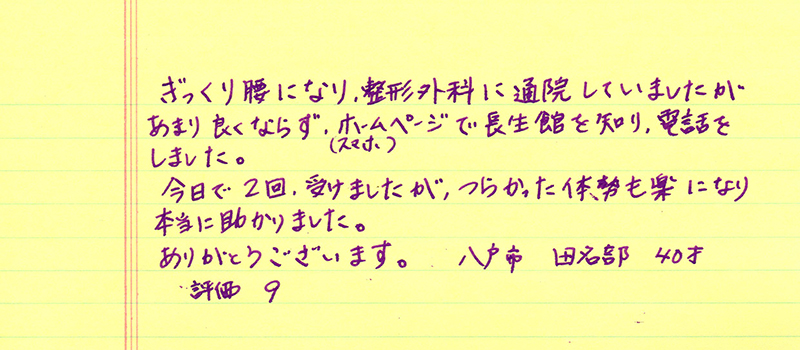 ぎっくり腰になり、整形外科に通院していましたが
あまり良くならず、ホームページで長生館を知り、電話を
(スマホ)
しました。
今日で2回、受けましたが、つらかった体勢も楽になり
本当に助かりました。
ありがとうございます。 八戸市 田名部 40才
評価 9